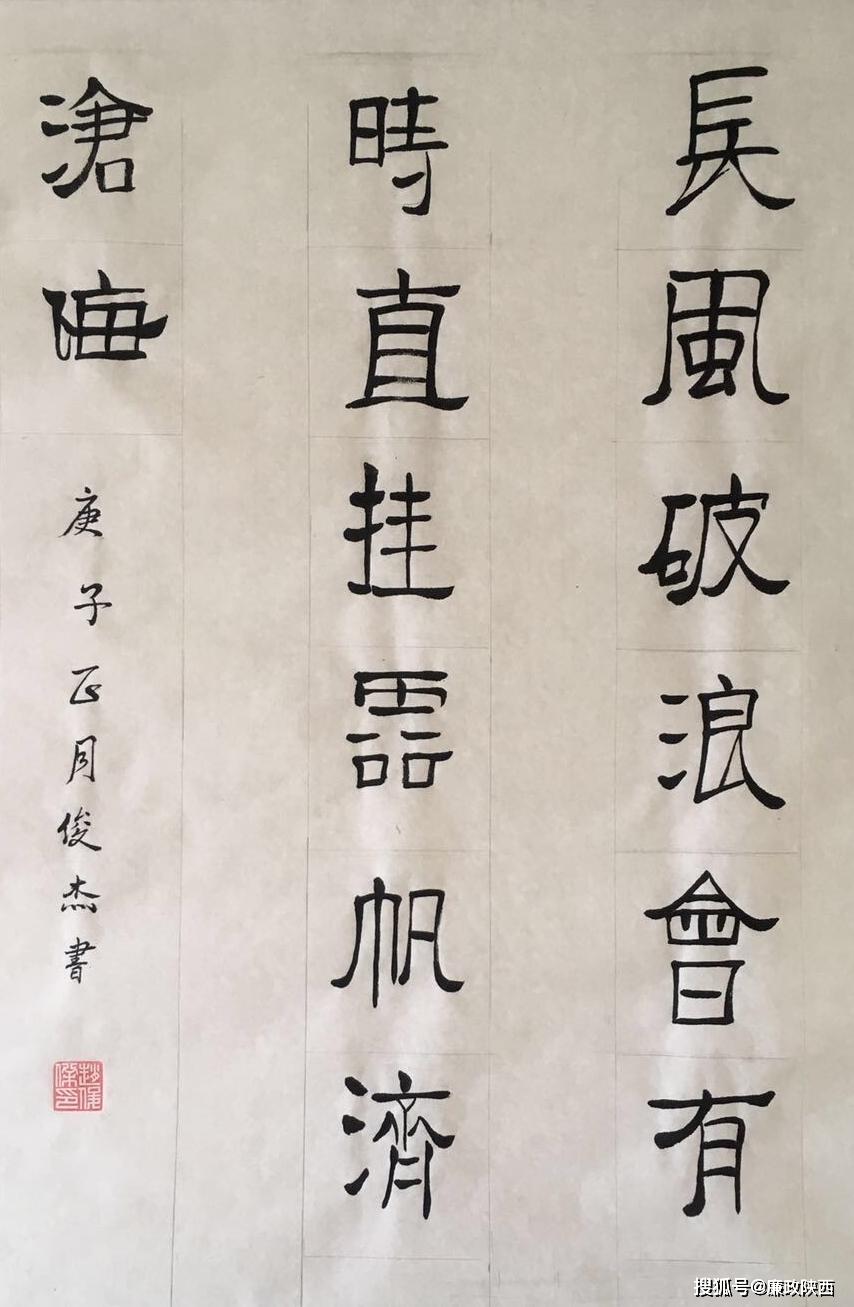 長風破浪會有
時直挂雲帆濟
滄海
庚子正月俊杰書
趙俊傑印
搜狐号@廉政陕西